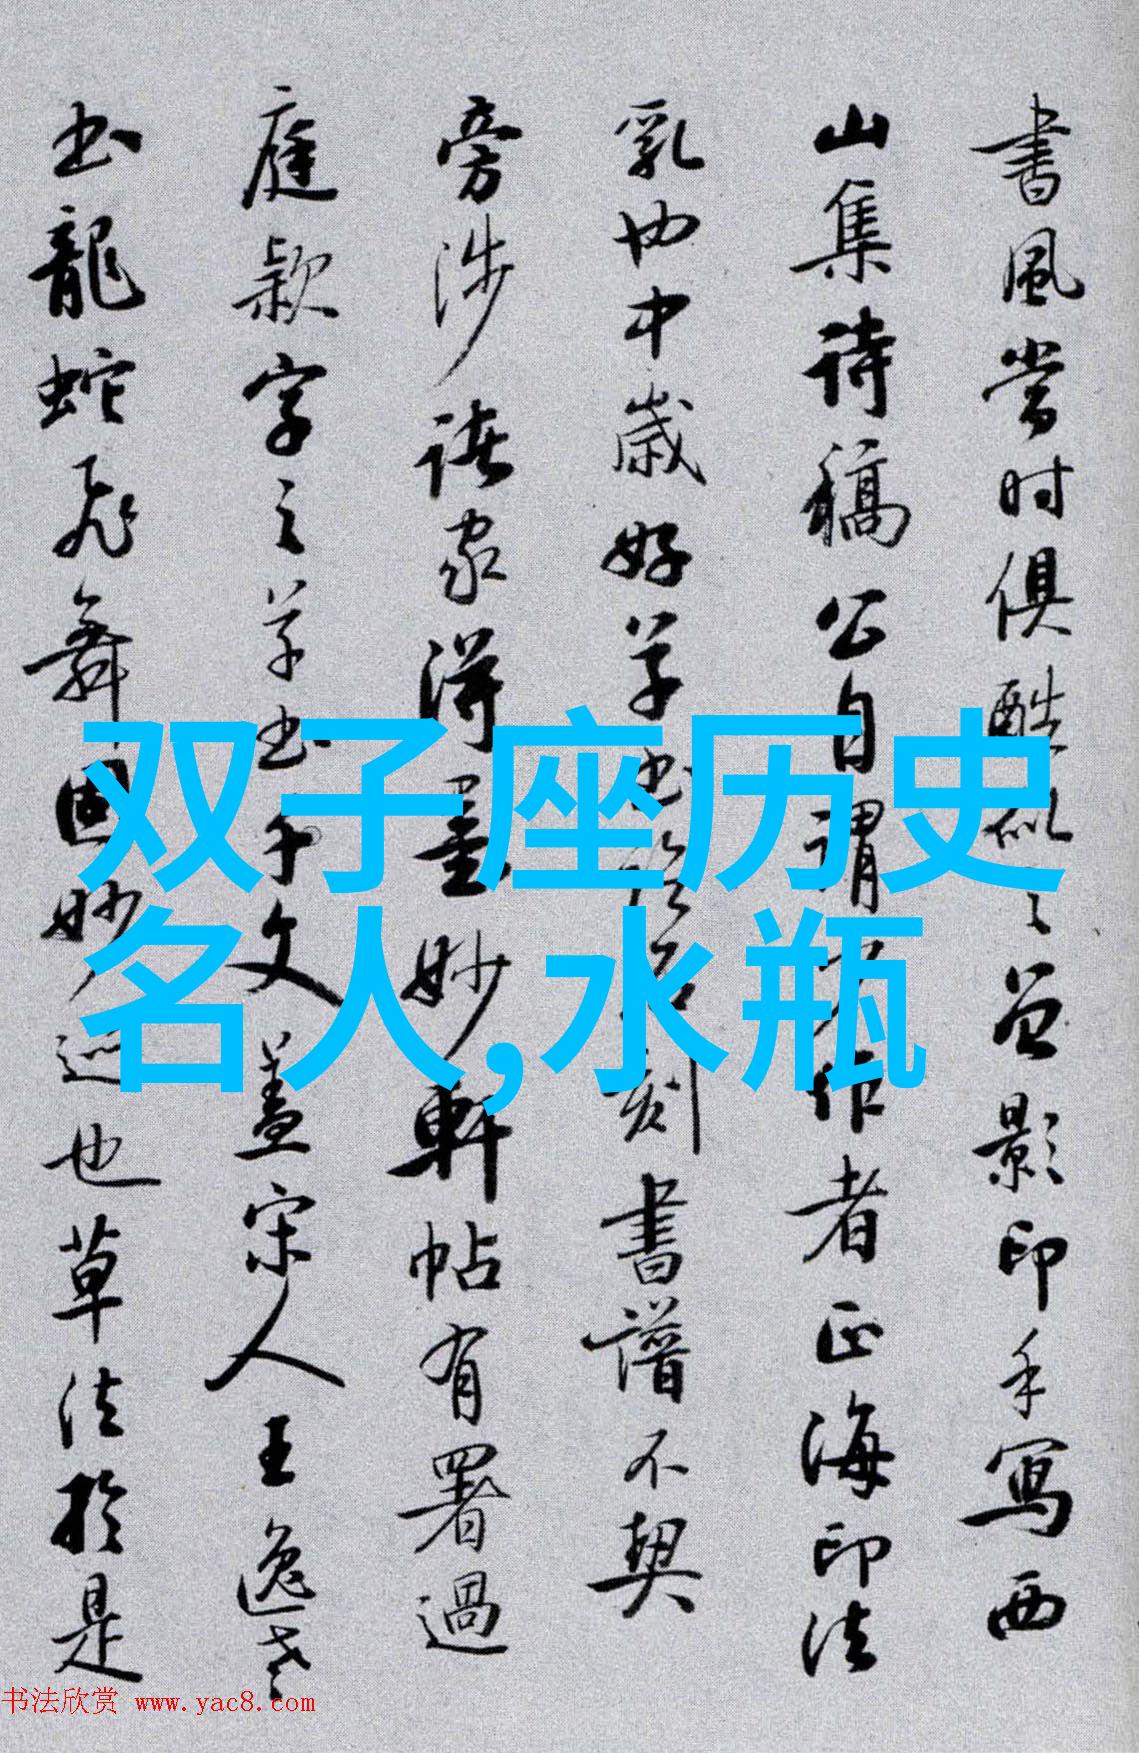 書風當時俱酷似之曾影印手寫西
山集詩稿公自謂
作者正海印法
乳也中歲好草書
刻書譜不契
旁涉諸家得
妙軒帖有署過
庭款字之草书千文蓋宋人王逸老
书龍蛇飛舞固妙
也草法於是
双子座历史
名人,水瓶
书法欣赏 www.yac8.com